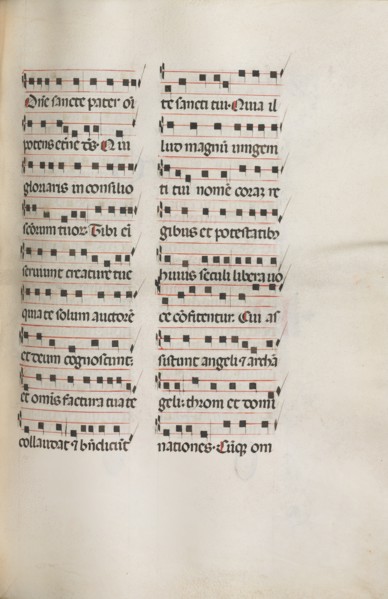 Dñe sancte pater oı̃
potens eterñe ds̃. Qui
gloriaris in consilio
scorum tuor̃. Tibi em̃
seruiunt creature tue
quia te solum auctorẽ
et deum cognoscunt:
et omis factura tua te
collaudat ⁊ bñdicunt̃
te sancti tui. Quia il
lud magnũ unigeni
ti tui nomẽ corã re
gibus et potestatibꝰ
huius seculi libera uo
ce cõfitentur. Cui as
sistunt angeli ⁊ archã
geli: throni et domi
nationes. Cũqꝫ om